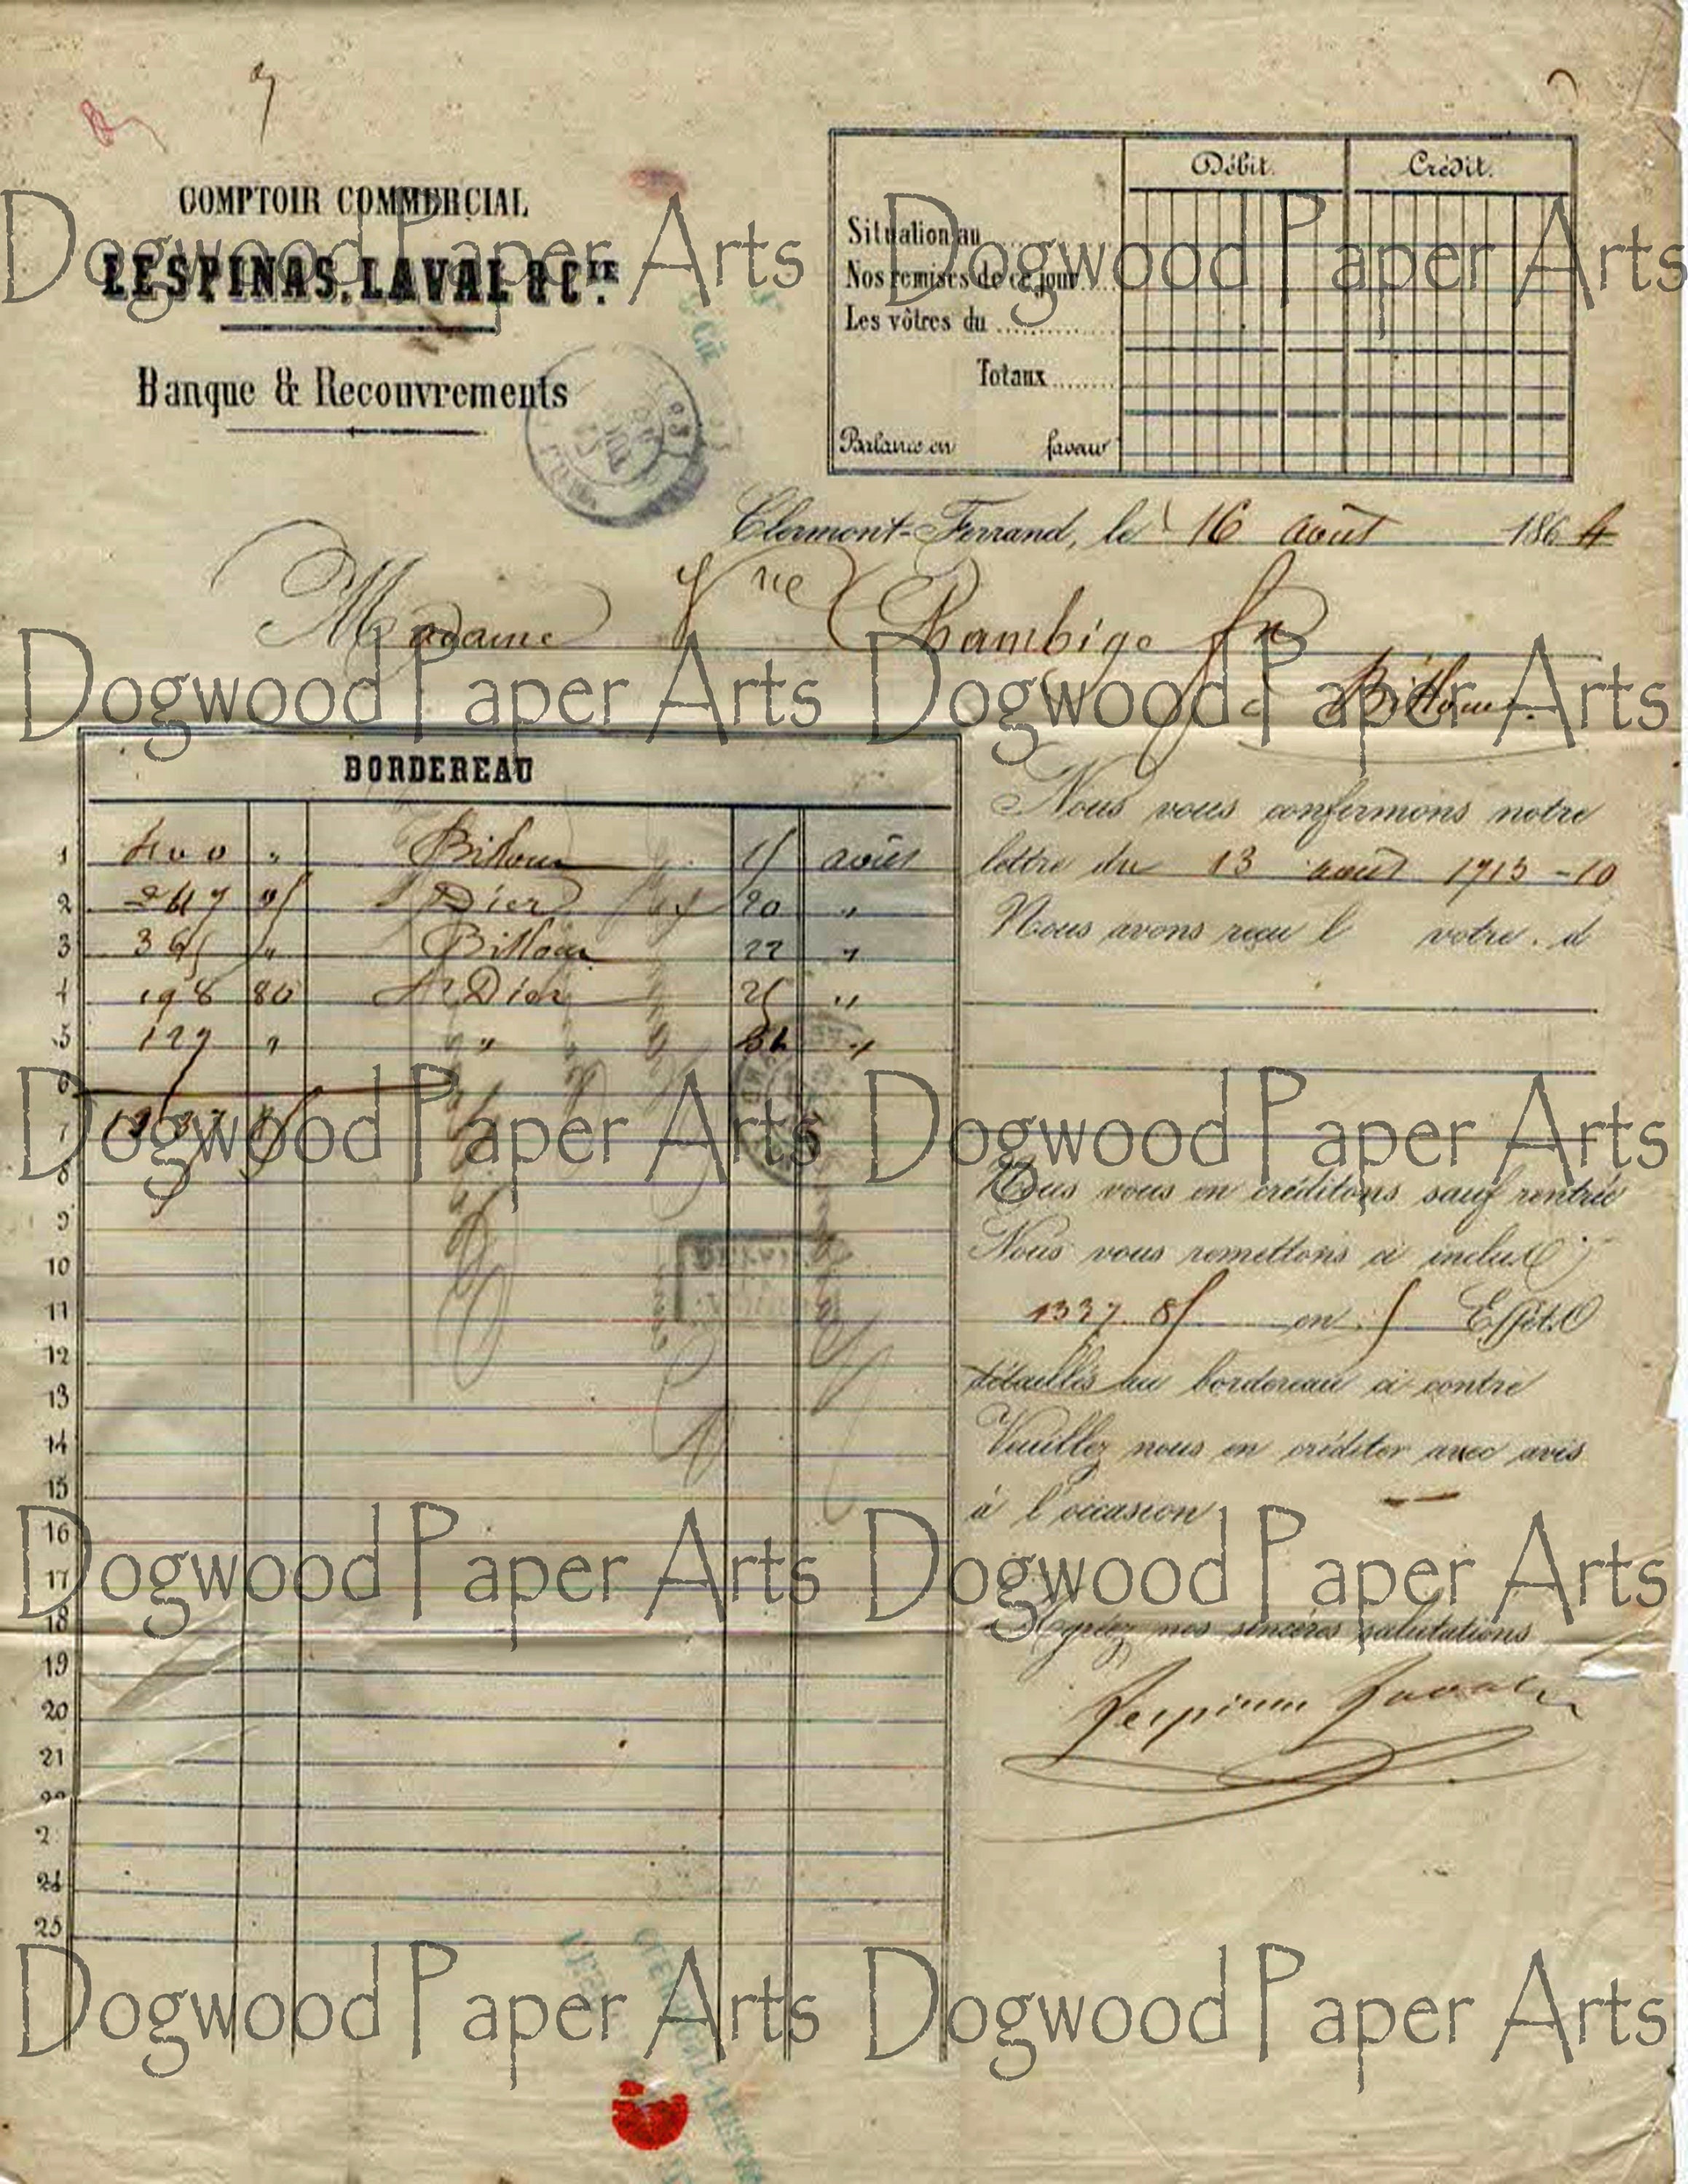 COMPTOIR COMMERCIAL
LESPINAS, LAVAL & CIE.
Banque & Recouvrements
Débit. Crédit.
Situation au
Nos remises de ce jour
Les vôtres du
Totaux
Balance en faveur
Clermont-Ferrand, le 16 août 1864
Madame Vve Chambige
à Billom
BORDEREAU
1 400 " Billom 15 août
2 247 05 20 "
3 365 " Billom 22 "
4 198 80 25 "
5 127 " " "
6
7 1337 85
8
9
10
11
12
13
14
15
16
17
18
19
20
21
22
2
24
25
Nous vous confirmons notre
lettre du 13 août 1913-10
Nous avons reçu l votre. d
Nous vous en créditons sauf rentrée
Nous vous remettons ci inclus
1337. 85 en 5 Effets
détaillés au bordereau ci-contre
Veuillez nous en créditer avec avis
à l'occasion
Agréez nos sincères salutations
Lespinas Laval
Dogwood Paper Arts Dogwood Paper Arts
Dogwood Paper Arts Dogwood Paper Arts
Dogwood Paper Arts Dogwood Paper Arts
Dogwood Paper Arts Dogwood Paper Arts
Dogwood Paper Arts Dogwood Paper Arts